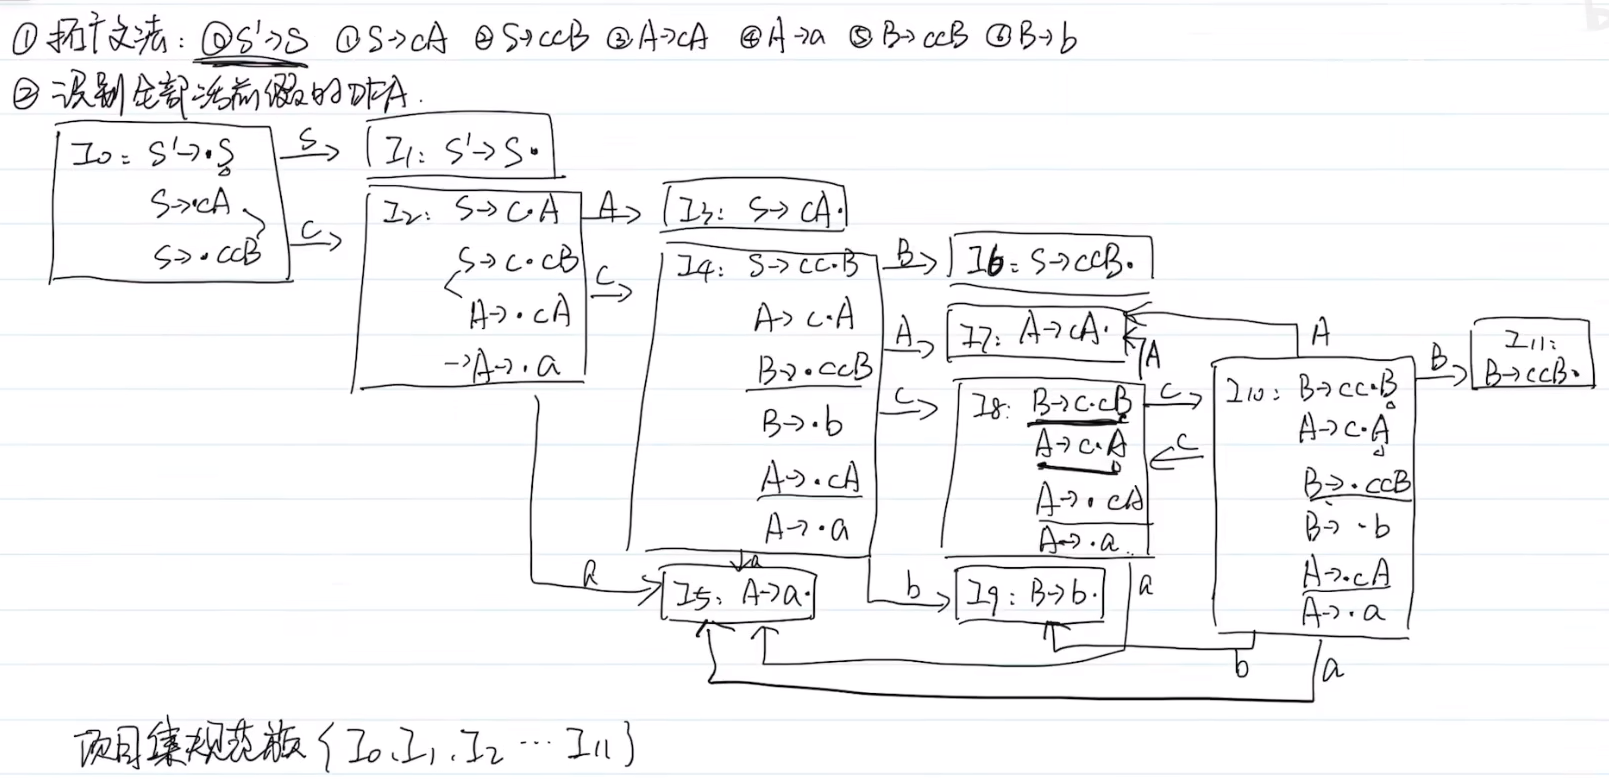 ① 拓广文法: ⓪S'→S ①S→cA ②S→ccB ③A→cA ④A→a ⑤B→ccB ⑥B→b
② 识别全部活前缀的DFA.
I0: S'→·S
S→·cA
S→·ccB
S
c
I1: S'→S·
I2: S→c·A
S→c·cB
A→·cA
→A→·a
A
c
a
I3: S→cA·
I4: S→cc·B
A→c·A
B→·ccB
B→·b
A→·cA
A→·a
B
A
c
a
b
I5: A→a·
I6: S→ccB·
I7: A→cA·
A
I8: B→c·cB
A→c·A
A→·cA
A→·a
c
c
a
I9: B→b·
A
I10: B→cc·B
A→c·A
B→·ccB
B→·b
A→·cA
A→·a
B
b
a
I11:
B→ccB·
项目集规范族{I0、I1、I2 ··· I11}